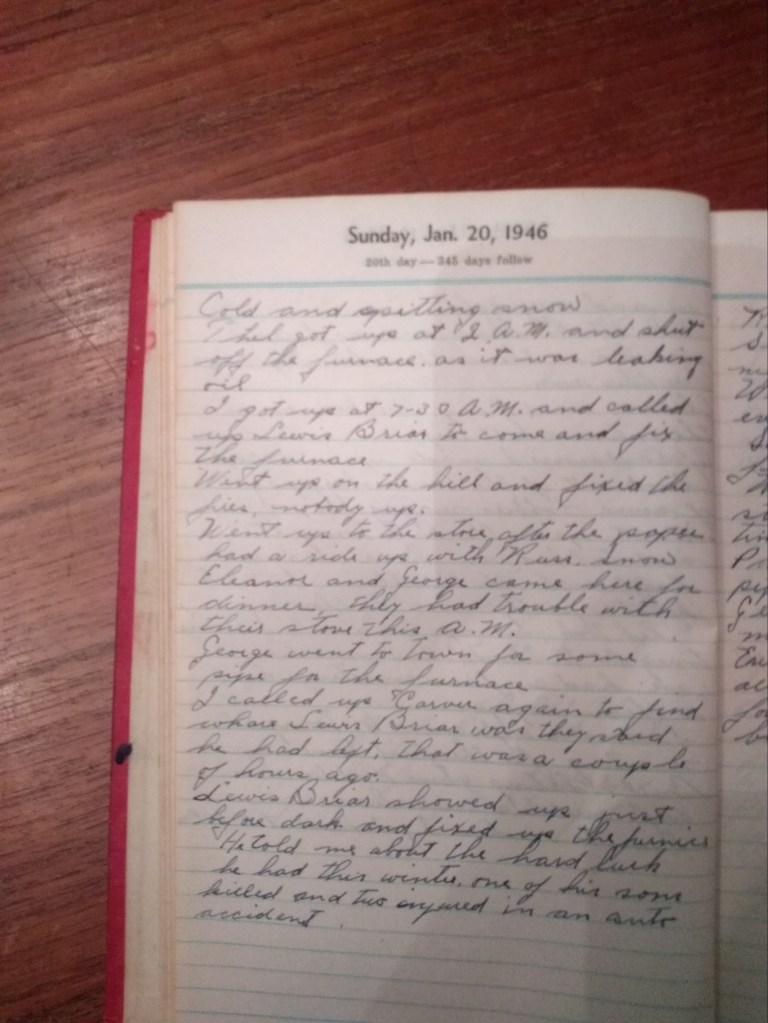 Sunday, Jan. 20, 1946
20th day — 345 days follow
Cold and spitting snow
Thel got up at 2 A.M. and shut
off the furnace. as it was leaking
oil
I got up at 7-30 A.M. and called
up Lewis Briar to come and fix
the furnace
Went up on the hill and fixed the
fires, nobody up.
Went up to the store after the paper
had a ride up with Russ. Snow
Eleanor and George came here for
dinner, they had trouble with
their stove this A.M.
George went to town for some
pipe for the furnace
I called up Carver again to find
whare Lewis Briar was they said
he had left, that was a couple
of hours ago.
Lewis Briar showed up just
before dark and fixed up the furnice
He told me about the hard luck
he had this winter. one of his sons
killed and two injured in an auto
accident.